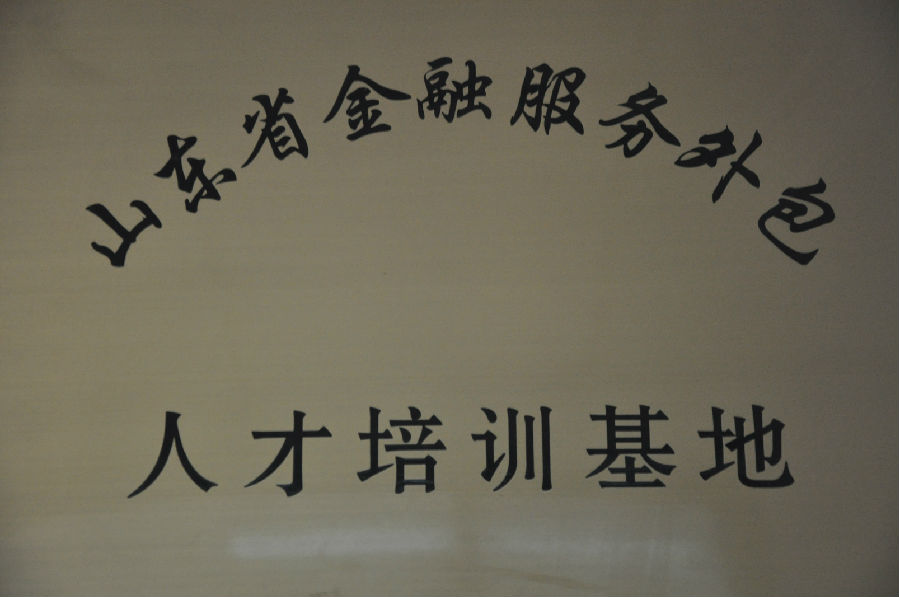 山东省金融服务外包
人才培训基地